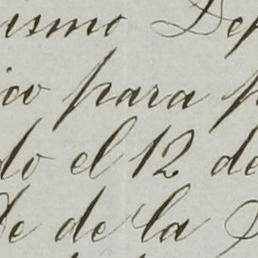 ismo Dep
ico para p
do el 12 de
de de la